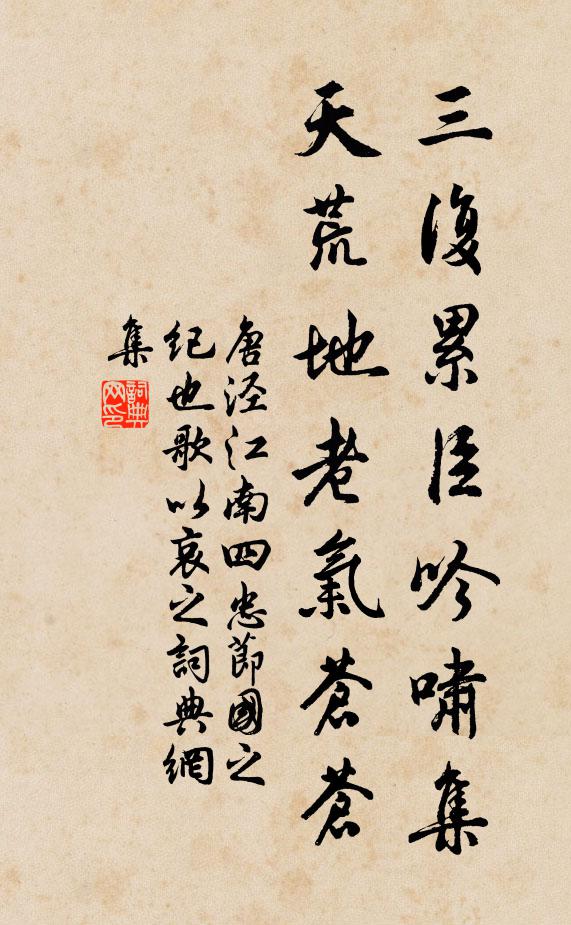 三復累臣吟嘯集
天荒地老氣蒼蒼
唐涇江南四忠節國之
紀也歌以哀之詞典網
集
詞典网印